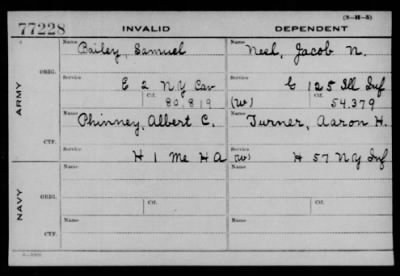 (3-H-5)
77228 INVALID DEPENDENT
Name Name
Bailey, Samuel Neel, Jacob N.
ORIG. Service Service
E 2 N Y Cav G 125 Ill Inf
Ctf. Ctf.
80,819 (W) 54,379
ARMY
Name Name
Phinney, Albert C. Turner, Aaron H.
CTF. Service Service
H 1 Me H A (W) H 57 N Y Inf
Name Name
ORIG. Service Service
Ctf. Ctf.
NAVY
Name Name
CTF.